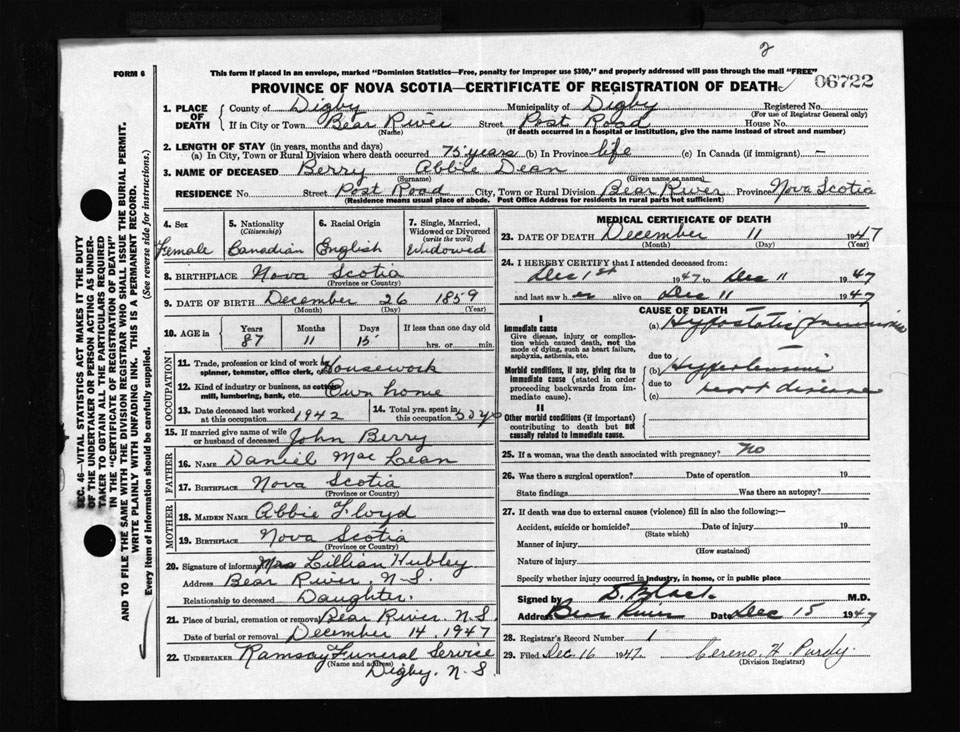 2
FORM 6
This form if placed in an envelope, marked "Dominion Statistics—Free, penalty for improper use $300," and properly addressed will pass through the mail "FREE"
PROVINCE OF NOVA SCOTIA—CERTIFICATE OF REGISTRATION OF DEATH
06722
SEC. 46—VITAL STATISTICS ACT MAKES IT THE DUTY
OF THE UNDERTAKER OR PERSON ACTING AS UNDER-
TAKER TO OBTAIN ALL THE PARTICULARS REQUIRED
IN THE "CERTIFICATE OF REGISTRATION OF DEATH"
AND TO FILE THE SAME WITH THE DIVISION REGISTRAR WHO SHALL ISSUE THE BURIAL PERMIT.
WRITE PLAINLY WITH UNFADING INK. THIS IS A PERMANENT RECORD.
Every item of information should be carefully supplied. (See reverse side for instructions.)
1. PLACE OF DEATH
County of Digby Municipality of Digby Registered No.
(For use of Registrar General only)
If in City or Town Bear River Street Post Road House No.
(Name) (If death occurred in a hospital or institution, give the name instead of street and number)
2. LENGTH OF STAY (in years, months and days)
(a) In City, Town or Rural Division where death occurred 75 years (b) In Province life (c) In Canada (if immigrant) —
3. NAME OF DECEASED Berry Abbie Dean
(Surname) (Given name or names)
RESIDENCE No. Street Post Road City, Town or Rural Division Bear River Province Nova Scotia
(Residence means usual place of abode. Post Office Address for residents in rural parts not sufficient)
4. Sex
Female
5. Nationality
(Citizenship)
Canadian
6. Racial Origin
English
7. Single, Married,
Widowed or Divorced
(write the word)
Widowed
8. BIRTHPLACE Nova Scotia
(Province or Country)
9. DATE OF BIRTH December 26 1859
(Month) (Day) (Year)
10. AGE in
Years Months Days If less than one day
87 11 15 hrs. or min.
OCCUPATION
11. Trade, profession or kind of work as Housework
spinner, teamster, office clerk, etc.
12. Kind of industry or business, as cotton Own home
mill, lumbering, bank, etc.
13. Date deceased last worked
at this occupation 1942
14. Total yrs. spent in
this occupation 50 yrs
15. If married give name of wife
or husband of deceased John Berry
FATHER
16. NAME Daniel Mac Lean
17. BIRTHPLACE Nova Scotia
(Province or Country)
MOTHER
18. MAIDEN NAME Abbie Floyd
19. BIRTHPLACE Nova Scotia
(Province or Country)
20. Signature of informant Mrs Lillian Hubley
Address Bear River, N.S.
Relationship to deceased Daughter.
21. Place of burial, cremation or removal Bear River, N.S.
Date of burial or removal December 14, 1947
22. UNDERTAKER Ramsay Funeral Service
(Name and address)
Digby, N.S
MEDICAL CERTIFICATE OF DEATH
23. DATE OF DEATH December 11 1947
(Month) (Day) (Year)
24. I HEREBY CERTIFY that I attended deceased from
Dec 1st 1947 to Dec 11 1947
and last saw her alive on Dec 11 1947
CAUSE OF DEATH
I
Immediate cause
Give disease, injury or complica-
tion which caused death, not the
mode of dying, such as heart failure,
asphyxia, asthenia, etc.
(a) Hypostatic pneumonia
due to
Morbid conditions, if any, giving rise to
immediate cause (stated in order
proceeding backwards from im-
mediate cause).
(b) Hypertensive
due to heart disease
(c)
II
Other morbid conditions (if important)
contributing to death but not
causally related to immediate cause.
25. If a woman, was the death associated with pregnancy? no
26. Was there a surgical operation? Date of operation 19
State findings Was there an autopsy?
27. If death was due to external causes (violence) fill in also the following:—
Accident, suicide or homicide? Date of injury 19
(State which)
Manner of injury
(How sustained)
Nature of injury
Specify whether injury occurred in industry, in home, or in public place
Signed by D. Black M.D.
Address Bear River Date Dec 15 1947
28. Registrar's Record Number 1
29. Filed Dec 16 1947. Cereno H. Purdy.
(Division Registrar)